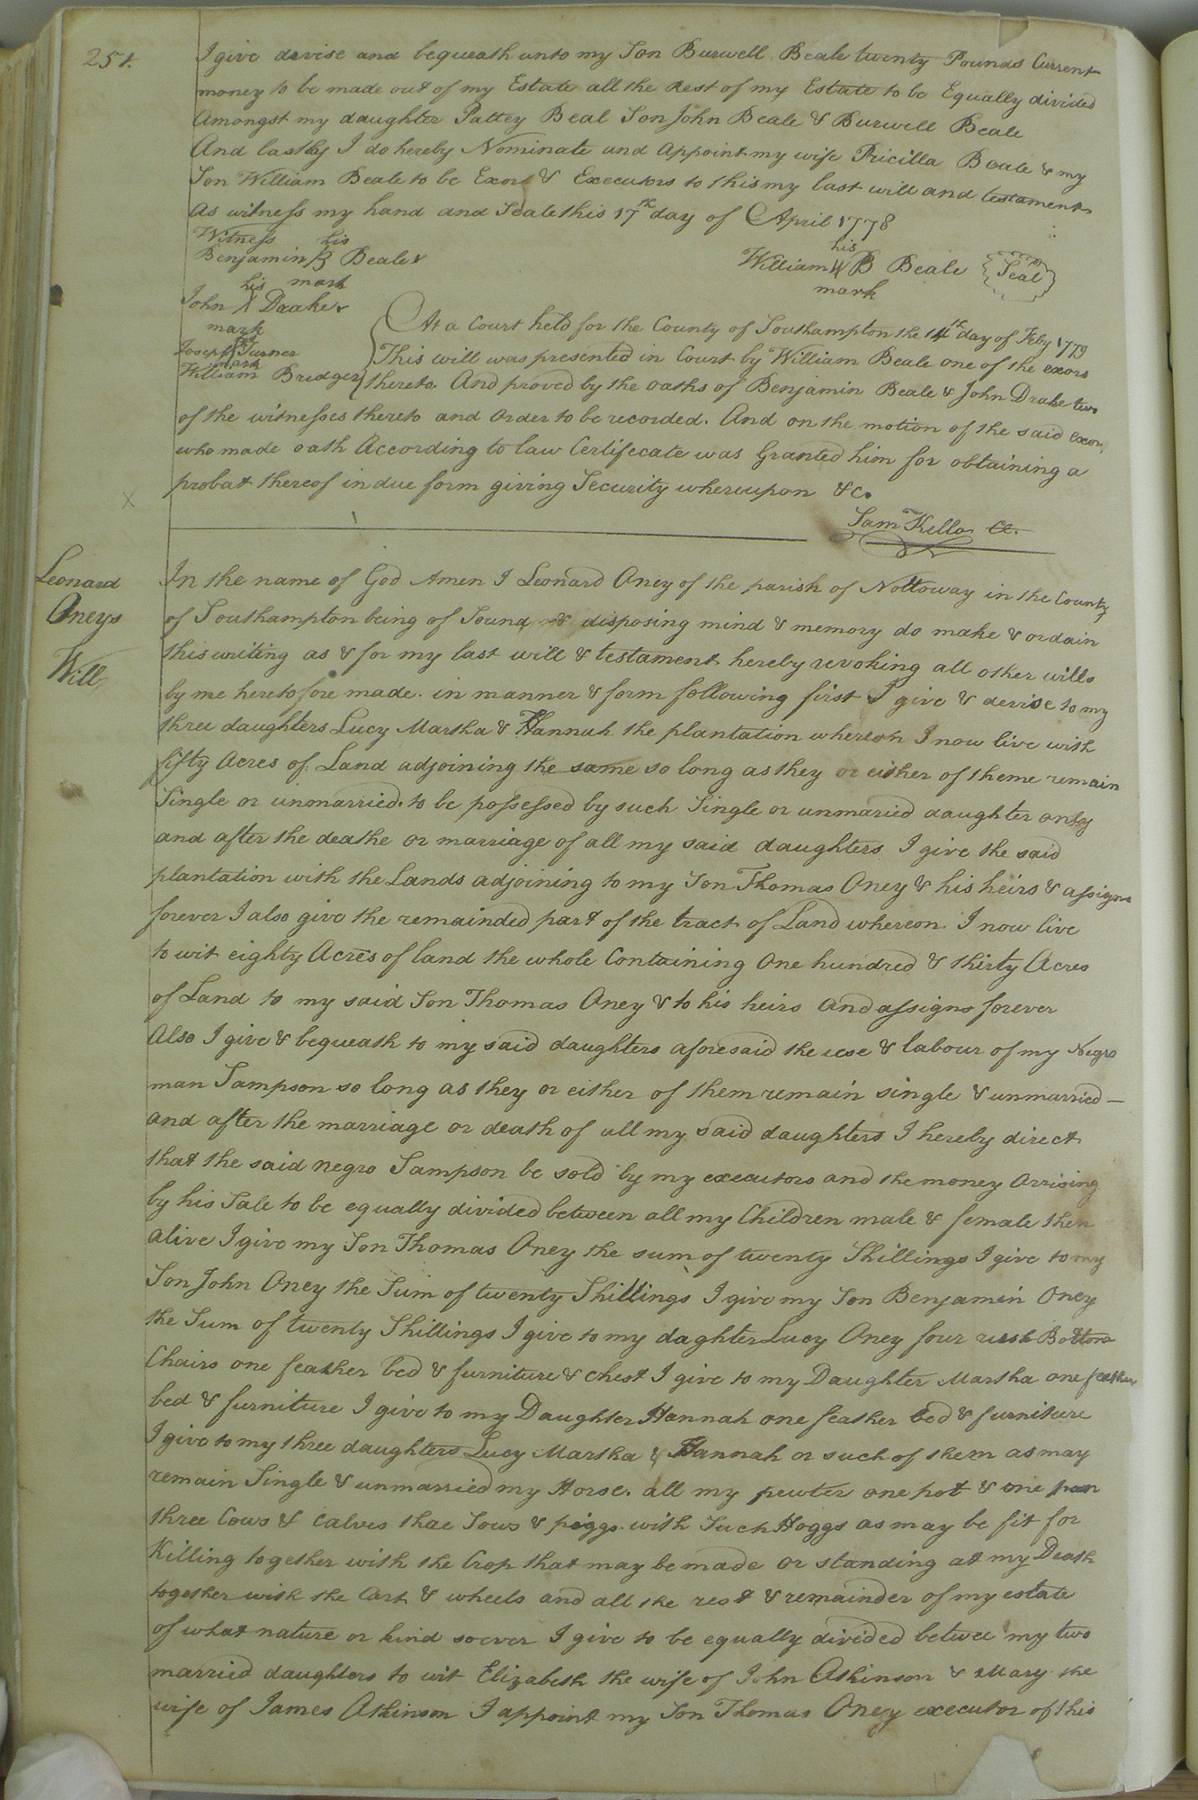 251.
I give devise and bequeath unto my Son Burwell Beale twenty Pounds Current
money to be made out of my Estate all the Rest of my Estate to be Equally divided
Amongst my daughter Pattey Beal Son John Beale & Burwell Beale
And lastly I do hereby Nominate and Appoint my wife Pricilla Beale & my
Son William Beale to be Exors & Executors to this my last will and testament
As witness my hand and Seale this 17th day of April 1778
Witness his
Benjamin B Beale
mark
his
William B Beale Seal
mark
his
John X Drake
mark
Joseph Turner
mark
William Bridger
At a Court held for the County of Southampton the 14th day of Feby 1779
This will was presented in Court by William Beale one of the exors
thereto And proved by the oaths of Benjamin Beale & John Drake two
of the witnesses thereto and Order to be recorded. And on the motion of the said Exor
who made oath According to law Certifecate was Granted him for obtaining a
probat thereof in due form giving Security whereupon &c.
Sam Kello Cl.
Leonard
Oneys
Will
In the name of God Amen I Leonard Oney of the parish of Nottoway in the County
of Southampton being of Sound disposing mind & memory do make & ordain
this writing as & for my last will & testament hereby revoking all other wills
by me heretofore made. in manner & form following first I give & devise to my
three daughters Lucy Martha & Hannah the plantation whereon I now live with
fifty Acres of Land adjoining the same so long as they or either of theme remain
Single or unmarried. to be possessed by such Single or unmaried daughter only
and after the deathe or marriage of all my said daughters I give the said
plantation with the Lands adjoining to my Son Thomas Oney & his heirs & assigns
forever I also give the remainded part of the tract of Land whereon I now live
to wit eighty Acres of land the whole Containing One hundred & thirty Acres
of Land to my said Son Thomas Oney & to his heirs and assigns forever
Also I give & bequeath to my said daughters aforesaid the use & labour of my Negro
man Sampson so long as they or either of them remain single & unmarried—
and after the marriage or death of all my said daughters I hereby direct
that the said negro Sampson be sold by my executors and the money Arrising
by his Sale to be equally divided between all my Children male & female then
alive I give my Son Thomas Oney the sum of twenty Shillings I give to my
Son John Oney the Sum of twenty Shillings I give my Son Benjamin Oney
the Sum of twenty Shillings I give to my daghter Lucy Oney four rush Bottom
Chairs one feather bed & furniture & chest I give to my Daughter Martha one feather
bed & furniture I give to my Daughter Hannah one feather bed & furniture
I give to my three daughters Lucy Martha & Hannah or such of them as may
remain Single & unmarried my Horse. all my pewter one pot & one pan
three Cows & Calves thae Sows & piggs with Such Hoggs as may be fit for
Killing together with the Crop that may be made or standing at my Death
together with the Cart & wheels and all the rest & remainder of my estate
of what nature or kind soever I give to be equally divided betwee my two
married daughters to wit Elizabeth the wife of John Atkinson & Mary the
wife of James Atkinson I appoint my Son Thomas Oney executor of this